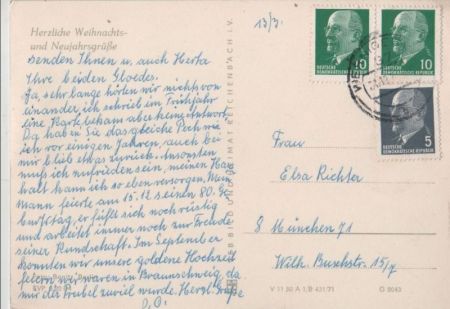 Herzliche Weihnachts-
und Neujahrsgrüße
senden Ihnen u. auch Herta
Ihre beiden Gloedes.
Ja, sehr lange hörten wir nichts von
einander, ich schrieb im Frühjahr
eine Karte, bekam aber keine Antwort.
Da haben Sie das gleiche Pech wie
ich vor einigen Jahren, auch bei
mir blieb etwas zurück. Ansonsten
muß ich zufrieden sein, meinen Haus
halt kann ich so eben versorgen. Mein
Mann feierte am 15.12 seinen 80. Ge
burtstag, er fühlt sich noch rüstig
und arbeitet immer noch zur Freude
seiner Kundschaft. Im September
konnten wir unsere goldene Hochzeit
feiern wir waren in Braunschweig, da
mir der Trubel zuviel wurde. Herzl. Grüße
13/3.
BILD UND HEIMAT REICHENBACH I. V.
10
DEUTSCHE
DEMOKRATISCHE REPUBLIK
10
DEUTSCHE
DEMOKRATISCHE REPUBLIK
5
DEUTSCHE
DEMOKRATISCHE REPUBLIK
Frau
Elsa Richter
8 München 71
Wilh. Buschstr. 15/
V 11 50 A 1/B 431/71